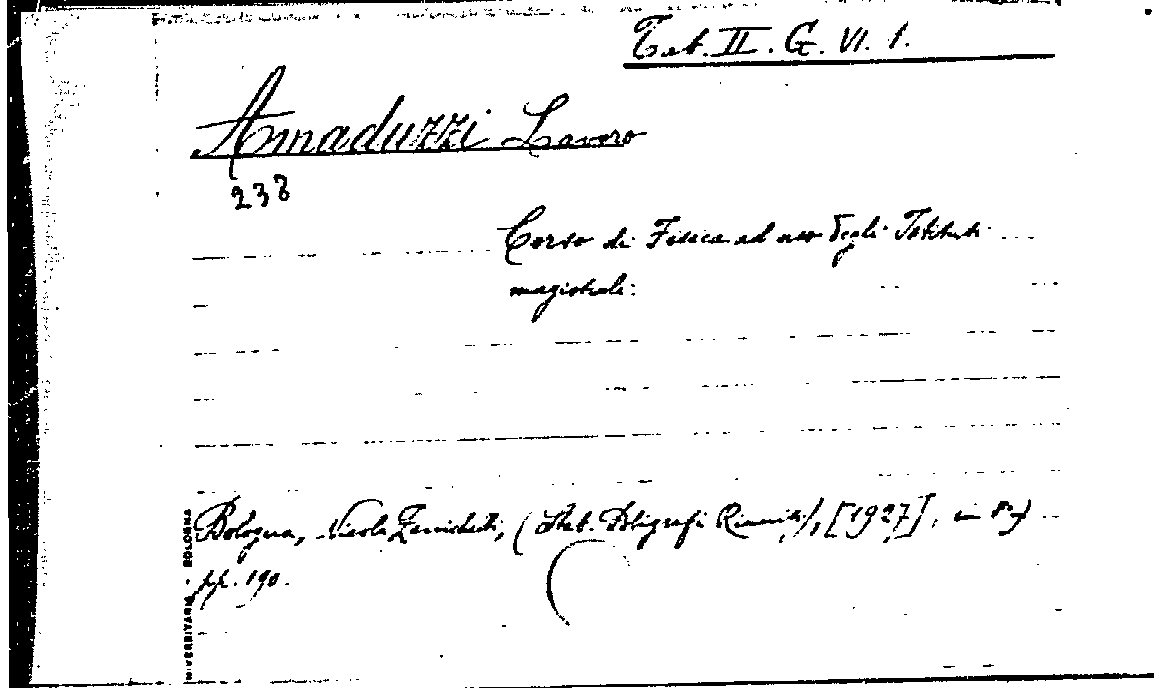 Tab. II. G. VI. 1.
Amaduzzi Lavoro
238
Corso di Fisica ad uso degli Istituti
magistrali.
Bologna, Nicola Zanichelli, (Stab. Poligrafi Riuniti), [1927], in 8°
pp. 190.
UNIVERSITARIA - BOLOGNA